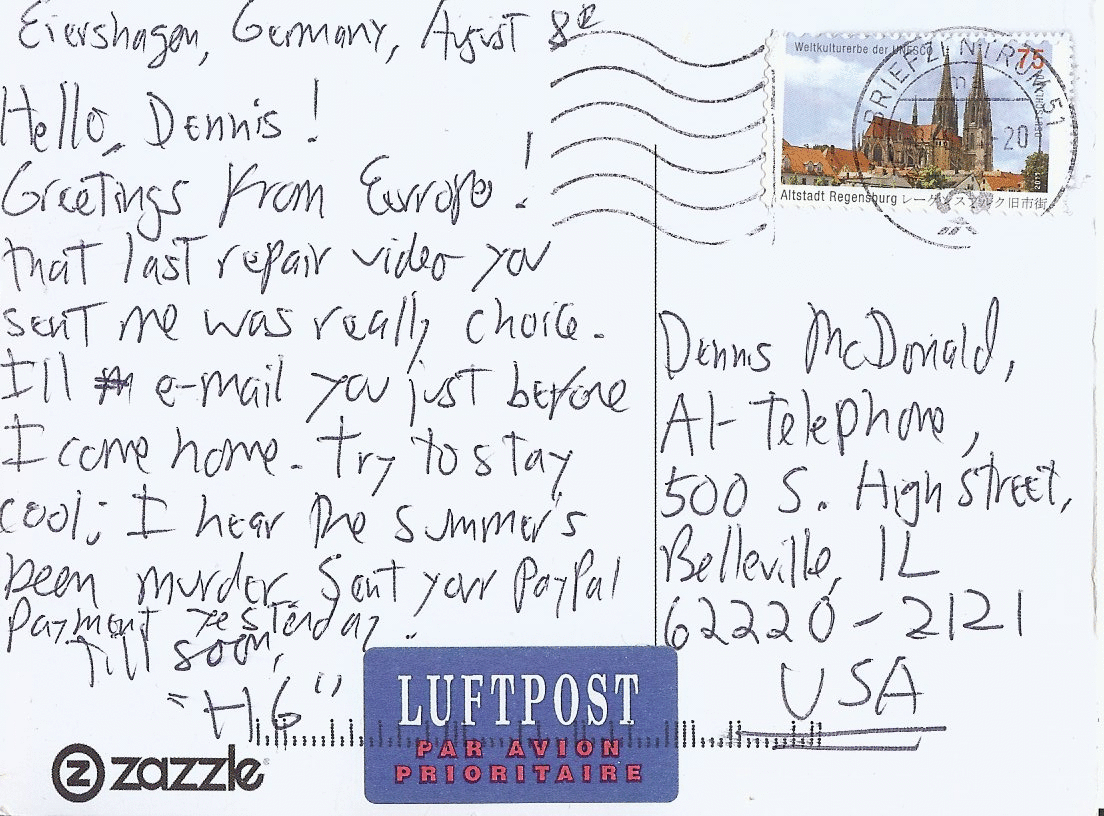 Eiershagen, Germany, August 8
Hello, Dennis!
Greetings from Europe!
that last repair video you
sent me was really choice.
I'll e-mail you just before
I come home. Try to stay
cool; I hear the summer's
been murder. Sent your PayPal
payment yesterday.
Till soon,
"HG"
zazzle
Weltkulturerbe der UNESCO
75
BRIEFZENTRUM 51
20
2011
Altstadt Regensburg レーゲンスブルク旧市街
Dennis McDonald,
A1-Telephone,
500 S. High Street,
Belleville, IL
62220-2121
USA
LUFTPOST
PAR AVION
PRIORITAIRE